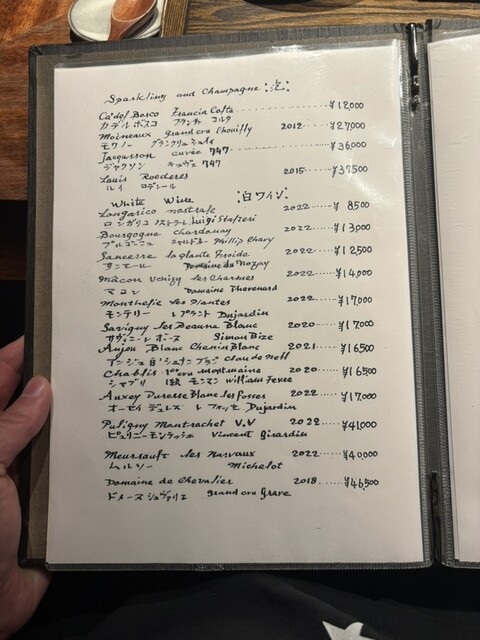 Sparkling and Champagne :泡:
Ca'del Bosco Francia Colta ¥12,000
カデルボスコ フランチャ コルタ
Moineaux grand cru Chouilly 2012 ¥27000
モワノー グランクリュ シュイイ
Jacqusson cuvée 747 ¥36000
ジャクソン キュヴェ 747
Louis Roederes 2015 ¥37500
ルイ ロデレール
White Wine :白ワイン:
Longarico nostrale 2022 ¥8500
ロンガリコ ノストラーレ Luigi
Bourgogne chardonay 2022 ¥13000
ブルゴーニュ シャルドネ Phillip Chavy
Sancerre la plante Froide 2022 ¥12500
サンセール Domaine du Nozay
Mâcon Uchizy les Charmes 2022 ¥14,000
マコン Domaine Therenard
Monthelie les Plantes 2022 ¥17000
モンテリー レプラント Dujardin
Savigny les Beaune Blanc 2020 ¥17000
サヴィニーレ ボーヌ Simon Bize
Anjou Blanc Chenin Blanc 2021 ¥16500
アンジュ白 シュナンブラン Claude
Chablis 1er cru montmaine 2020 ¥16500
シャブリ 1級 モンマン william Fevre
Auxey Duresse Blanc les fosses 2022 ¥17,000
オーセイデュレス レフォッセ Dujardin
Puligny Mantrachet V.V 2022 ¥41000
ピュリニーモンラッシェ Vincent Girardin
Meursault les Narvaux 2022 ¥40,000
ムルソー Michelot
Domaine de Chevalier 2018 ¥46,500
ドメーヌ シュヴァリエ grand cru Grave